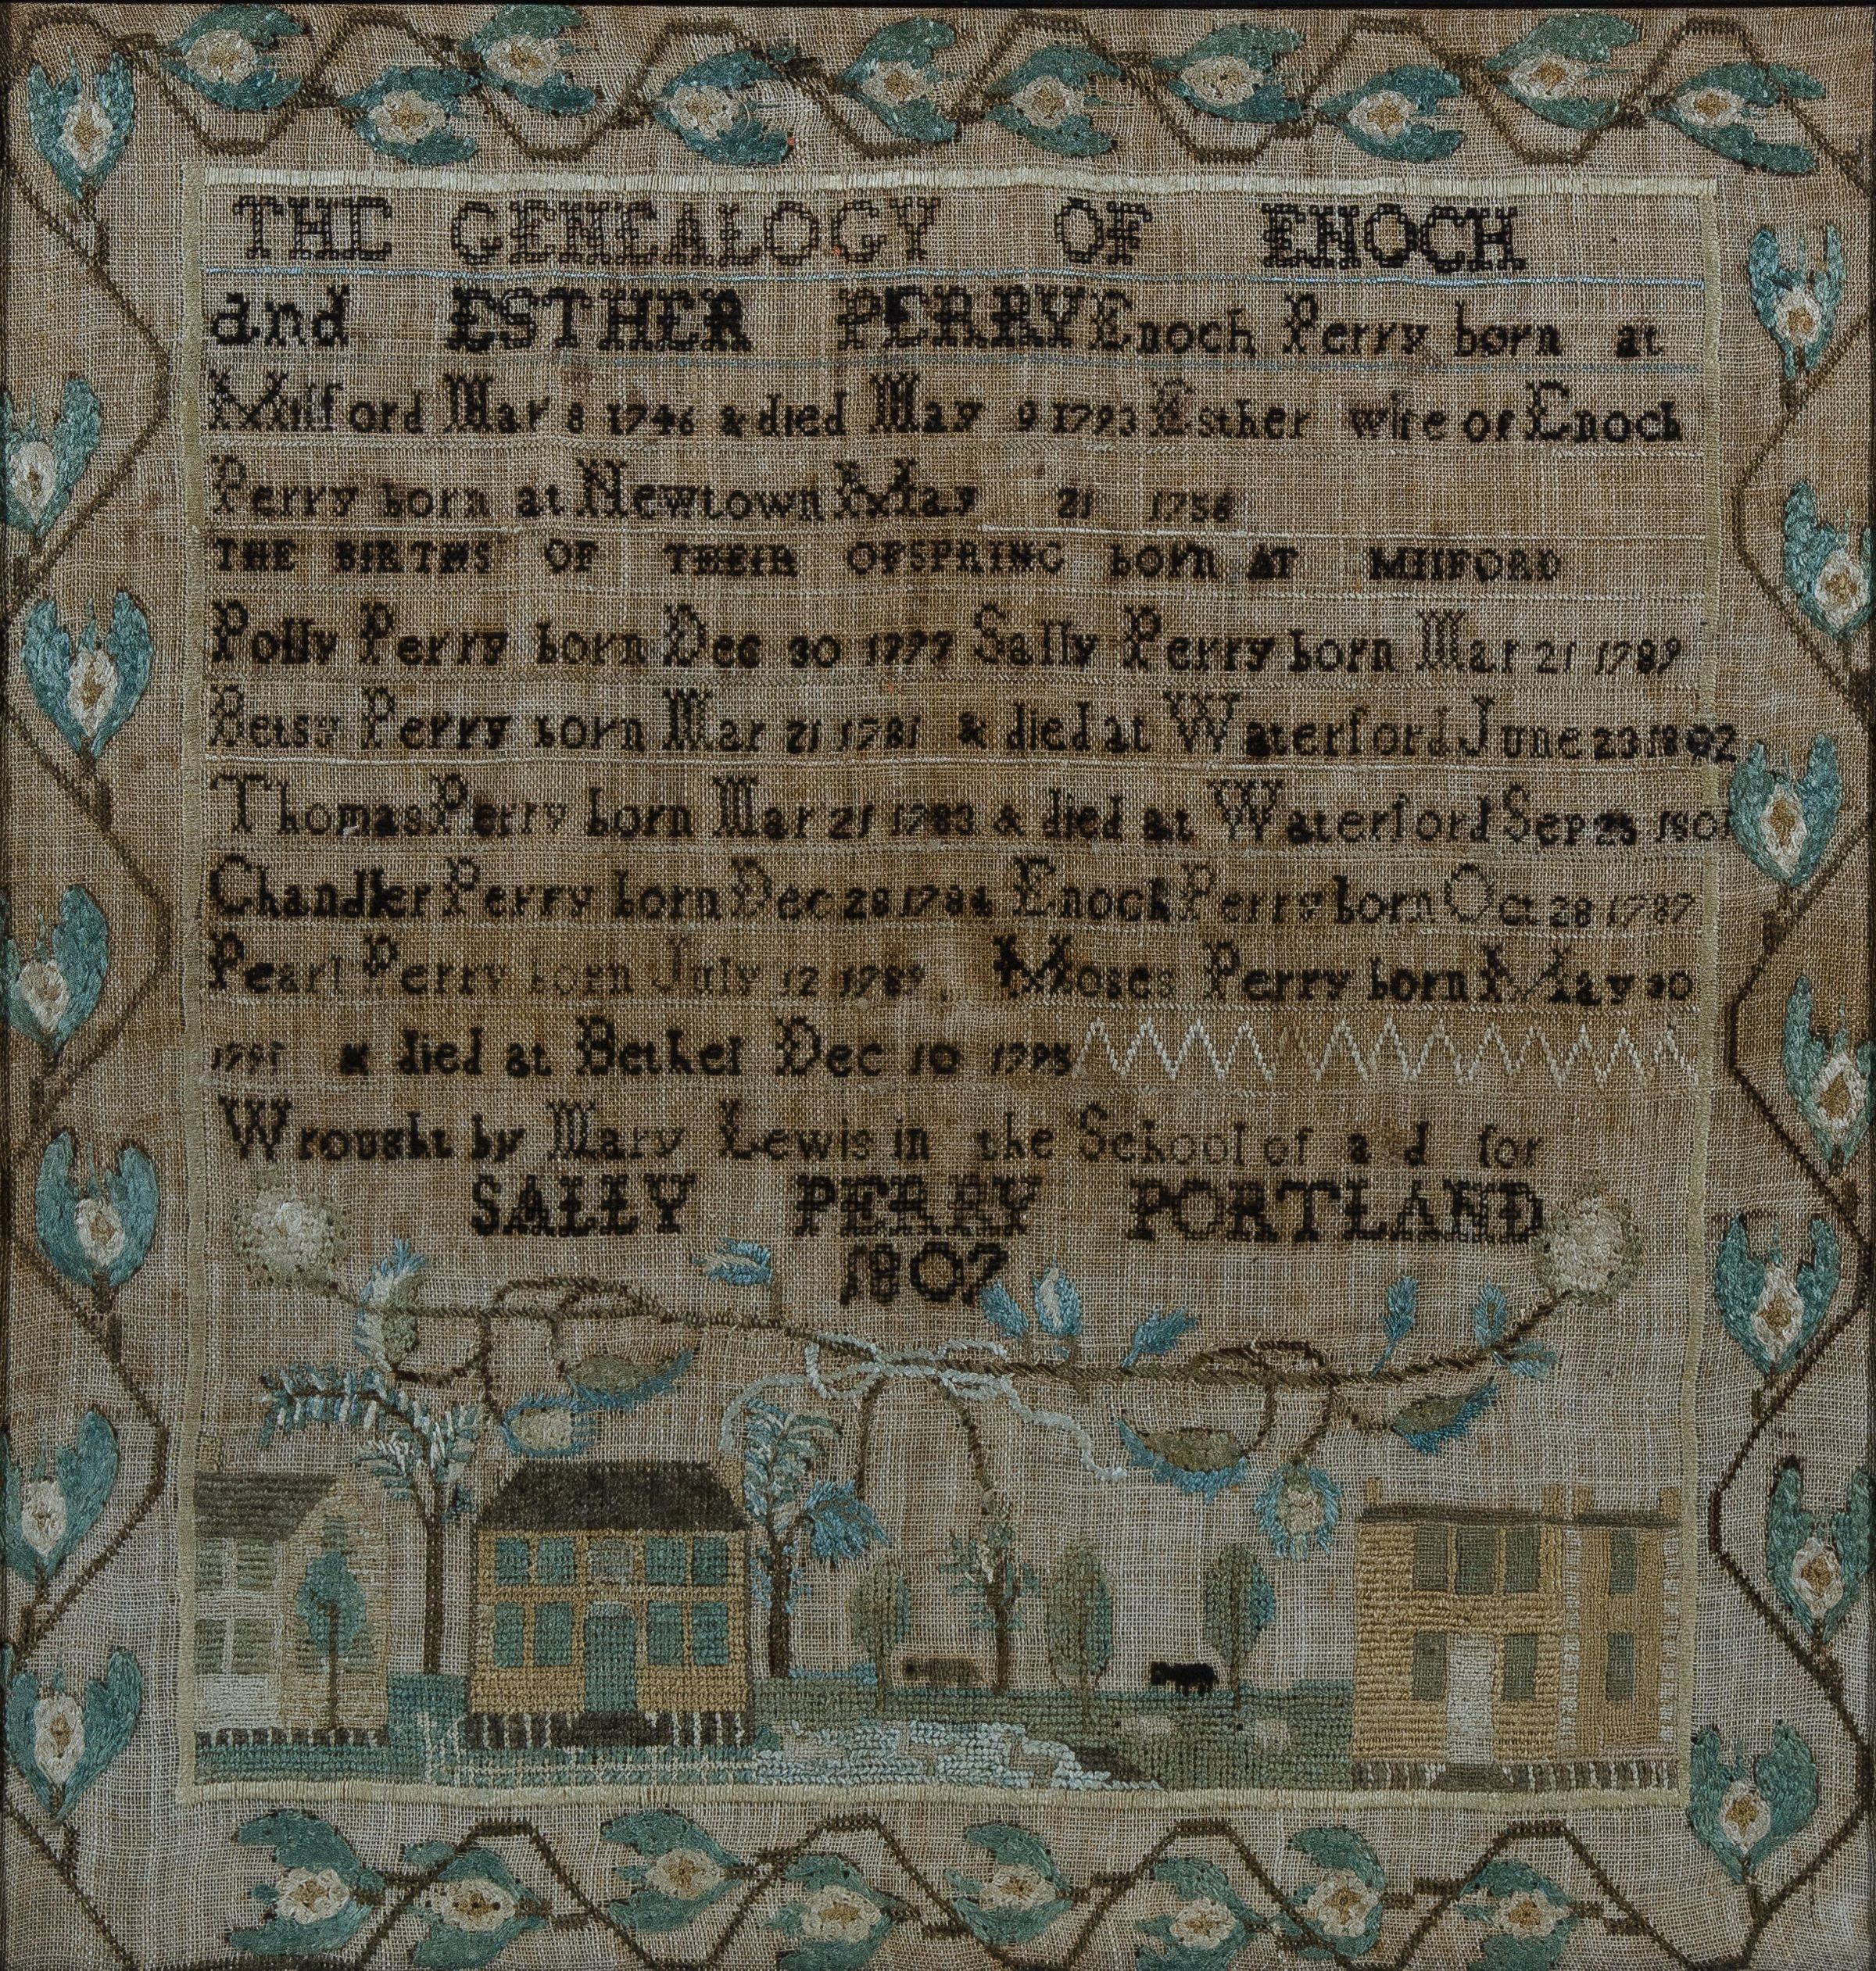 THE GENEALOGY OF ENOCH
and ESTHER PERRY Enoch Perry born at
Milford Mar 8 1746 & died May 9 1793 Esther wife of Enoch
Perry born at Newtown May 21 1756
THE BIRTHS OF THEIR OFSPRING born AT MILFORD
Polly Perry born Dec 30 1777 Sally Perry born Mar 21 1789
Betsy Perry born Mar 21 1781 & died at Waterford June 23 1802
Thomas Perry born Mar 21 1783 & died at Waterford Sep 25 1801
Chandler Perry born Dec 28 1784 Enoch Perry born Oct 28 1787
Pearl Perry born July 12 1789 Moses Perry born May 30
1791 & died at Bethel Dec 10 1795
Wrought by Mary Lewis in the School of a d for
SALLY PERRY PORTLAND
1807